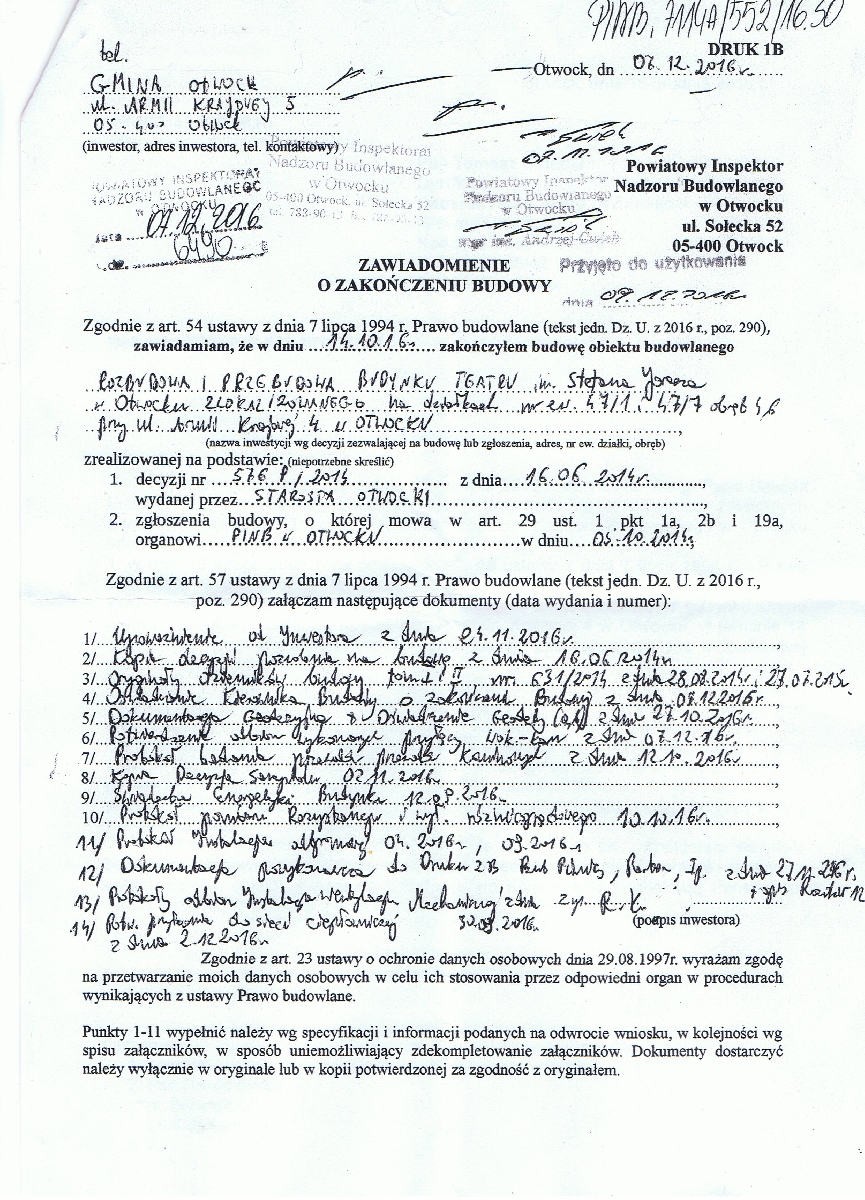 PINB. 7114A/552/16.50
DRUK 1B
tel.
Otwock, dn 07.12.2016r.
GMINA OTWOCK
ul. ARMII KRAJOWEJ 5
05-400 Otwock
(inwestor, adres inwestora, tel. kontaktowy)
Powiatowy Inspektorat
Nadzoru Budowlanego
w Otwocku
05-400 Otwock, ul. Sołecka 52
POWIATOWY INSPEKTORAT
NADZORU BUDOWLANEGO
w OTWOCKU
07.12.2016
6490
Powiatowy Inspektor
Nadzoru Budowlanego
w Otwocku
mgr inż. Andrzej
Powiatowy Inspektor
Nadzoru Budowlanego
w Otwocku
ul. Sołecka 52
05-400 Otwock
Przyjęto do użytkowania
dnia 09.12.2016r.
ZAWIADOMIENIE
O ZAKOŃCZENIU BUDOWY
Zgodnie z art. 54 ustawy z dnia 7 lipca 1994 r. Prawo budowlane (tekst jedn. Dz. U. z 2016 r., poz. 290),
zawiadamiam, że w dniu 14.10.16r. zakończyłem budowę obiektu budowlanego
ROZBUDOWA I PRZEBUDOWA BUDYNKU TEATRU im. Stefana Jaracza
w Otwocku ZLOKALIZOWANEGO na działkach nr ew. 47/1 i 47/7 obręb
przy ul. Armii Krajowej 4 w OTWOCKU
(nazwa inwestycji wg decyzji zezwalającej na budowę lub zgłoszenia, adres, nr ew. działki, obręb)
zrealizowanej na podstawie: (niepotrzebne skreślić)
1. decyzji nr 576 P/2014 z dnia 16.06.2014r.
wydanej przez STAROSTA OTWOCKI
2. zgłoszenia budowy, o której mowa w art. 29 ust. 1 pkt 1a, 2b i 19a,
organowi PINB w OTWOCKU w dniu 03.10.2014r,
Zgodnie z art. 57 ustawy z dnia 7 lipca 1994 r. Prawo budowlane (tekst jedn. Dz. U. z 2016 r.,
poz. 290) załączam następujące dokumenty (data wydania i numer):
1/ Upoważnienie od Inwestora z dnia 24.11.2016r.
2/ Kopia decyzji pozwolenia na budowę z dnia 16.06.2014r.
3/ Oryginały dzienników budowy tom I i II nr. 631/2014 z dnia 28.08.2014r. i 27.07.2015r.
4/ Oświadczenie Kierownika Budowy o zakończeniu Budowy z dnia 07.12.2016r.
5/ Dokumentacja Geodezyjna + Oświadczenie Geodety z dnia 27.10.2016r.
6/ Potwierdzenie odbioru wykonanych przyłączy wod-kan z dnia 07.12.16r.
7/ Protokół badania przewodów kominowych z dnia 12.10.2016r.
8/ Kopia Decyzji Sanepidu 02.11.2016r.
9/ Świadectwo Energetyki Budynku 12.09.2016r.
10/ Protokół pomiaru 10.10.16r.
11/ Protokół Instalacja odgromowej 04.2016r, 09.2016r
12/ Dokumentacja powykonawcza do Druku 2B z dnia 27.11.2016r.
13/ Protokoły odbioru Instalacja Wentylacja Mechanicznej z dnia
30.09.2016r.
(podpis inwestora)
14/ Potw. przyłączenia do sieci ciepłowniczej
z dnia 2.12.2016r.
Zgodnie z art. 23 ustawy o ochronie danych osobowych dnia 29.08.1997r. wyrażam zgodę
na przetwarzanie moich danych osobowych w celu ich stosowania przez odpowiedni organ w procedurach
wynikających z ustawy Prawo budowlane.
Punkty 1-11 wypełnić należy wg specyfikacji i informacji podanych na odwrocie wniosku, w kolejności wg
spisu załączników, w sposób uniemożliwiający zdekompletowanie załączników. Dokumenty dostarczyć
należy wyłącznie w oryginale lub w kopii potwierdzonej za zgodność z oryginałem.